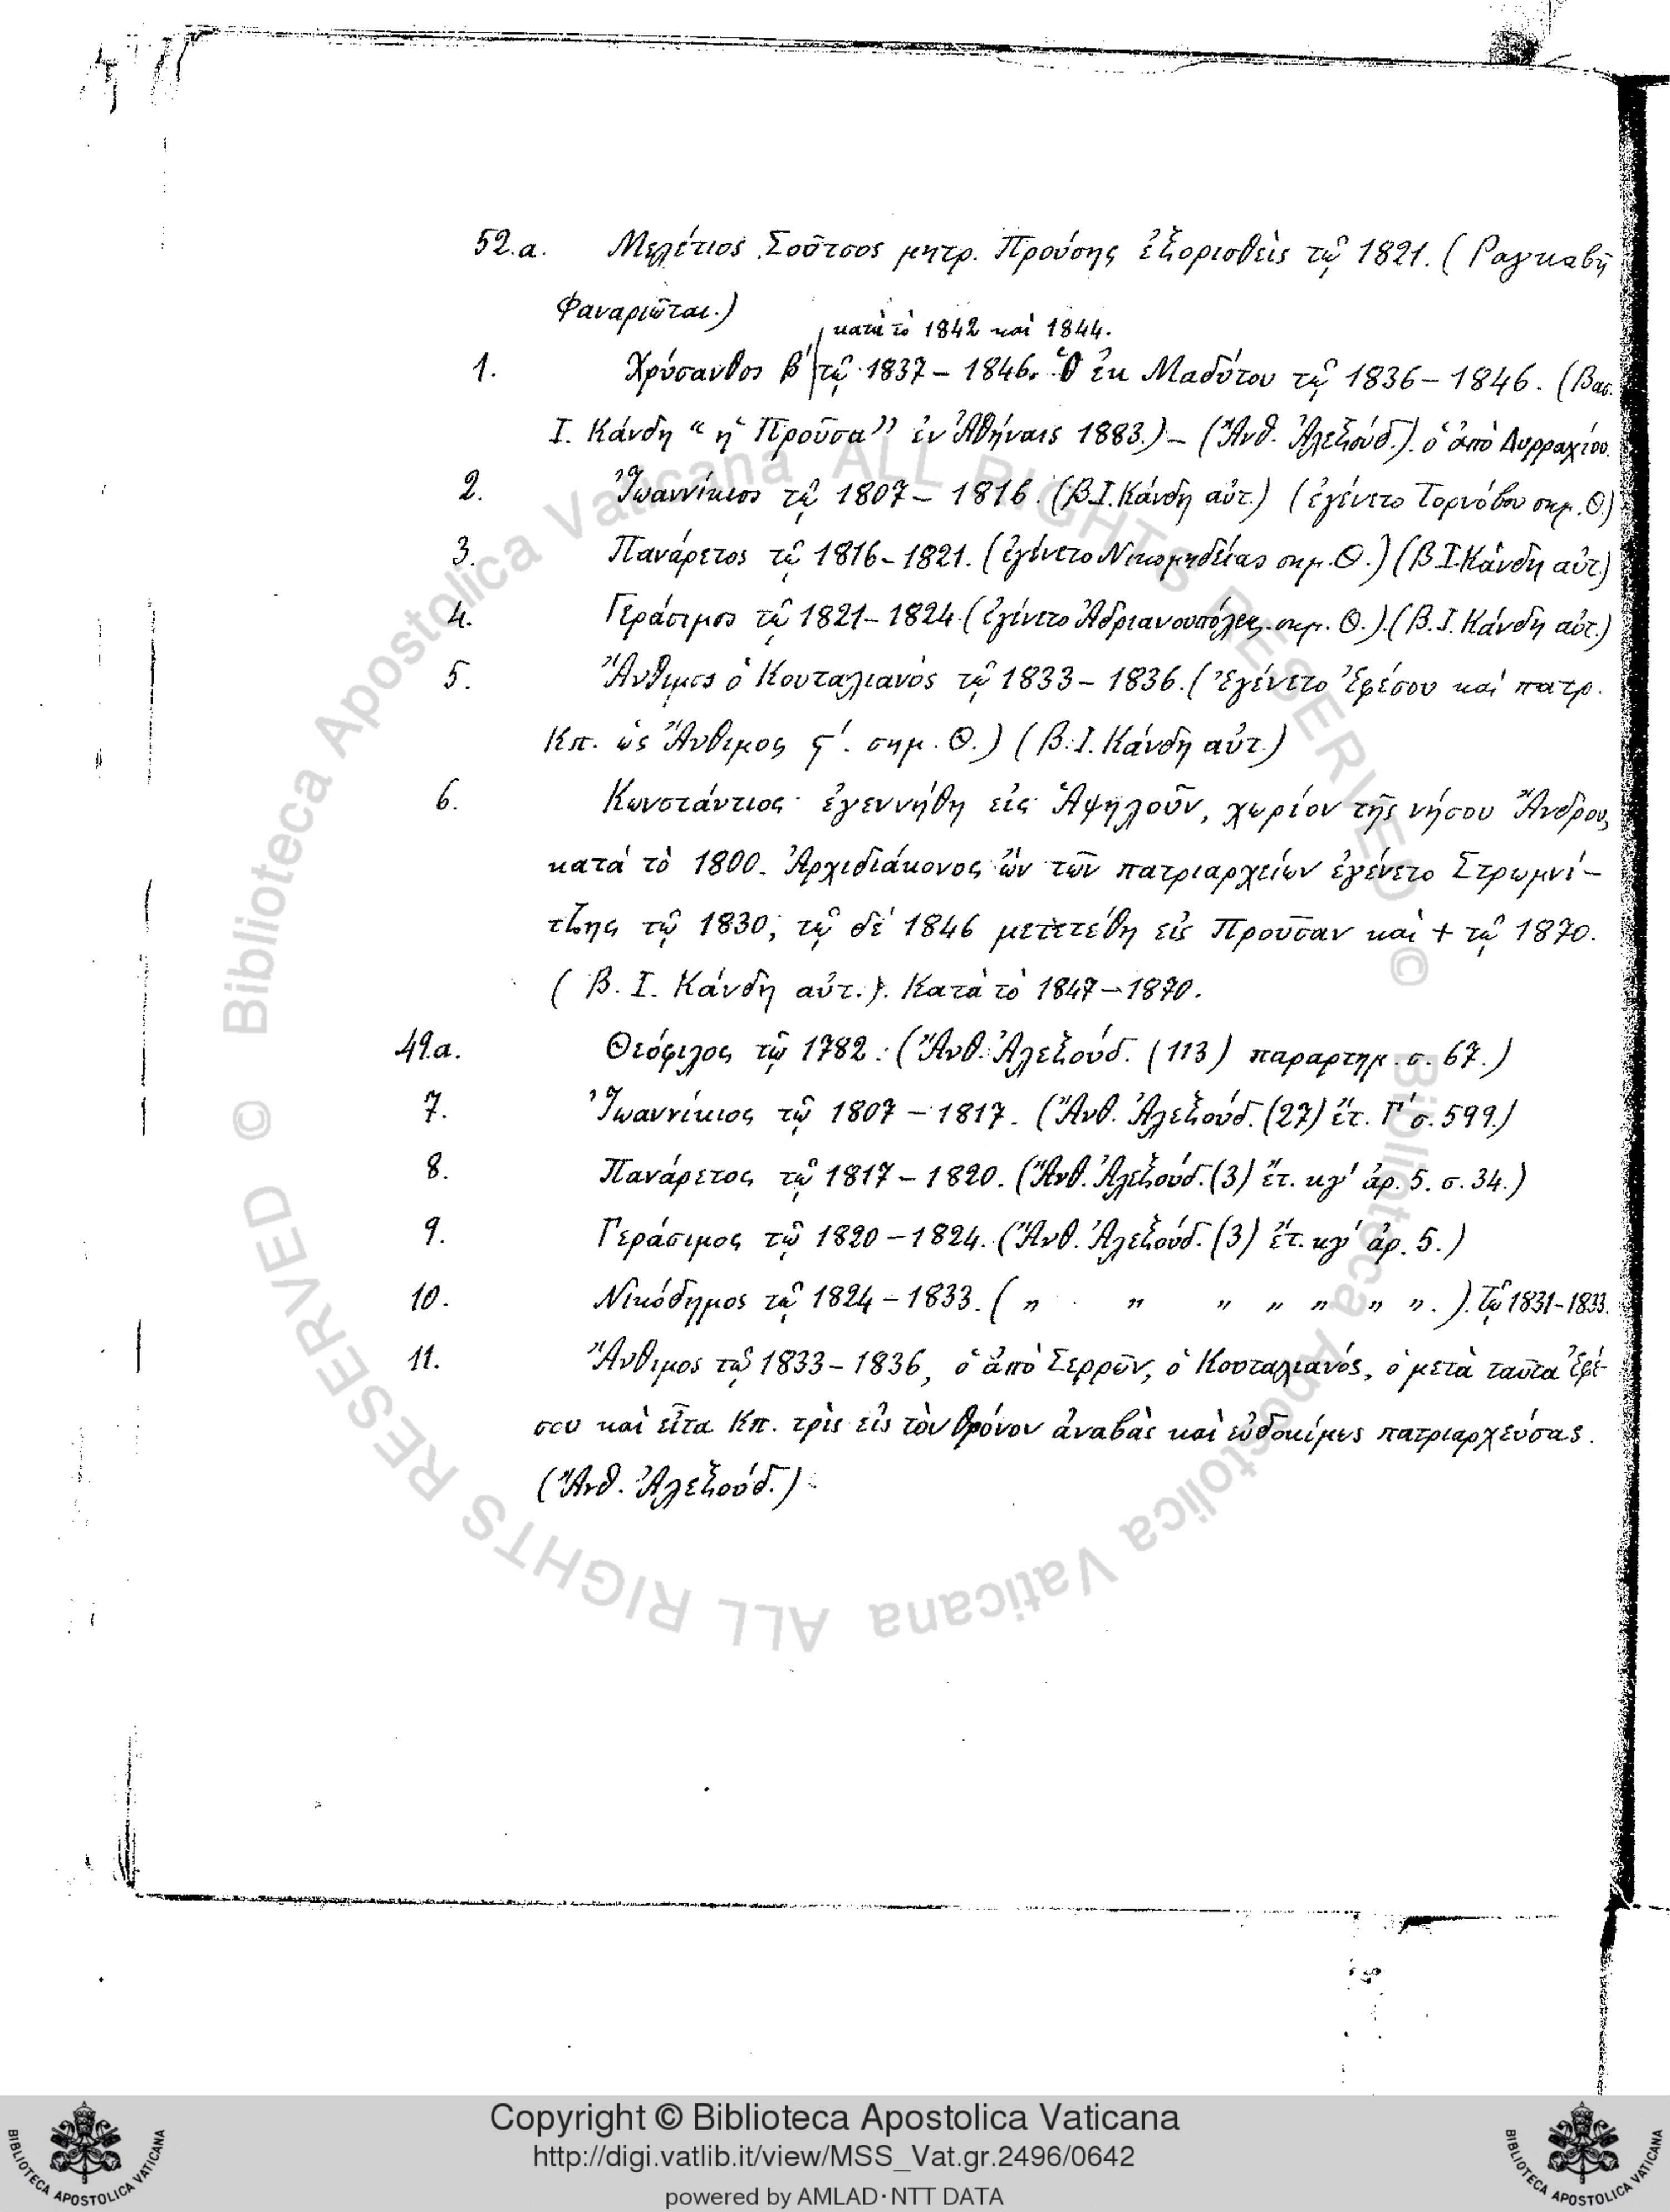 52.α. Μελέτιος Σοῦτσος μητρ. Προύσης ἐξορισθεὶς τῷ 1821. (Ραγκαβῆ
Φαναριῶται.)
κατὰ τὸ 1842 καὶ 1844.
1. Χρύσανθος β' τῷ 1837 – 1846. Ὁ ἐκ Μαδύτου τῷ 1836 – 1846. (Βασ.
Ι. Κάνδη “ἡ Προῦσα” ἐν Ἀθήναις 1883.) – (Ἄνθ. Ἀλεξούδ.). ὁ ἀπὸ Δυρραχίου.
2. Ἰωαννίκιος τῷ 1807 – 1816. (Β.Ι. Κάνδη αὐτ.) (ἐγένετο Τορνόβου σημ. Θ.)
3. Πανάρετος τῷ 1816 – 1821. (ἐγένετο Νικομηδείας σημ. Θ.) (Β.Ι. Κάνδη αὐτ.)
4. Γεράσιμος τῷ 1821 – 1824 (ἐγένετο Ἀδριανουπόλεως σημ. Θ.). (Β.Ι. Κάνδη αὐτ.)
5. Ἄνθιμος ὁ Κουταλιανὸς τῷ 1833 – 1836. (Ἐγένετο Ἐφέσου καὶ πατρ.
Κπ. ὡς Ἄνθιμος ϛ'. σημ. Θ.) (Β.Ι. Κάνδη αὐτ.)
6. Κωνστάντιος· ἐγεννήθη εἰς Ἀψηλοῦν, χωρίον τῆς νήσου Ἄνδρου,
κατὰ τὸ 1800. Ἀρχιδιάκονος ὢν τῶν πατριαρχείων ἐγένετο Στρωμνί-
τζης τῷ 1830, τῷ δὲ 1846 μετετέθη εἰς Προῦσαν καὶ + τῷ 1870.
(Β. Ι. Κάνδη αὐτ.). Κατὰ τὸ 1847 – 1870.
49.α. Θεόφιλος τῷ 1782. (Ἄνθ. Ἀλεξούδ. (113) παραρτημ. σ. 67.)
7. Ἰωαννίκιος τῷ 1807 – 1817. (Ἄνθ. Ἀλεξούδ. (27) ἔτ. Γ' σ. 599.)
8. Πανάρετος τῷ 1817 – 1820. (Ἄνθ. Ἀλεξούδ. (3) ἔτ. κγ' ἀρ. 5. σ. 34.)
9. Γεράσιμος τῷ 1820 – 1824. (Ἄνθ. Ἀλεξούδ. (3) ἔτ. κγ' ἀρ. 5.)
10. Νικόδημος τῷ 1824 – 1833. ( „ „ „ „ „ „ „. ). Τῷ 1831-1833.
11. Ἄνθιμος τῷ 1833 – 1836, ὁ ἀπὸ Σερρῶν, ὁ Κουταλιανός, ὁ μετὰ ταῦτα Ἐφέ-
σου καὶ εἶτα Κπ. τρὶς εἰς τὸν θρόνον ἀναβὰς καὶ εὐδοκίμως πατριαρχεύσας.
(Ἄνθ. Ἀλεξούδ.)
© Biblioteca Apostolica Vaticana ALL RIGHTS RESERVED
© Biblioteca Apostolica Vaticana ALL RIGHTS RESERVED
Copyright © Biblioteca Apostolica Vaticana
http://digi.vatlib.it/view/MSS_Vat.gr.2496/0642
powered by AMLAD·NTT DATA
BIBLIOTECA APOSTOLICA VATICANA
BIBLIOTECA APOSTOLICA VATICANA